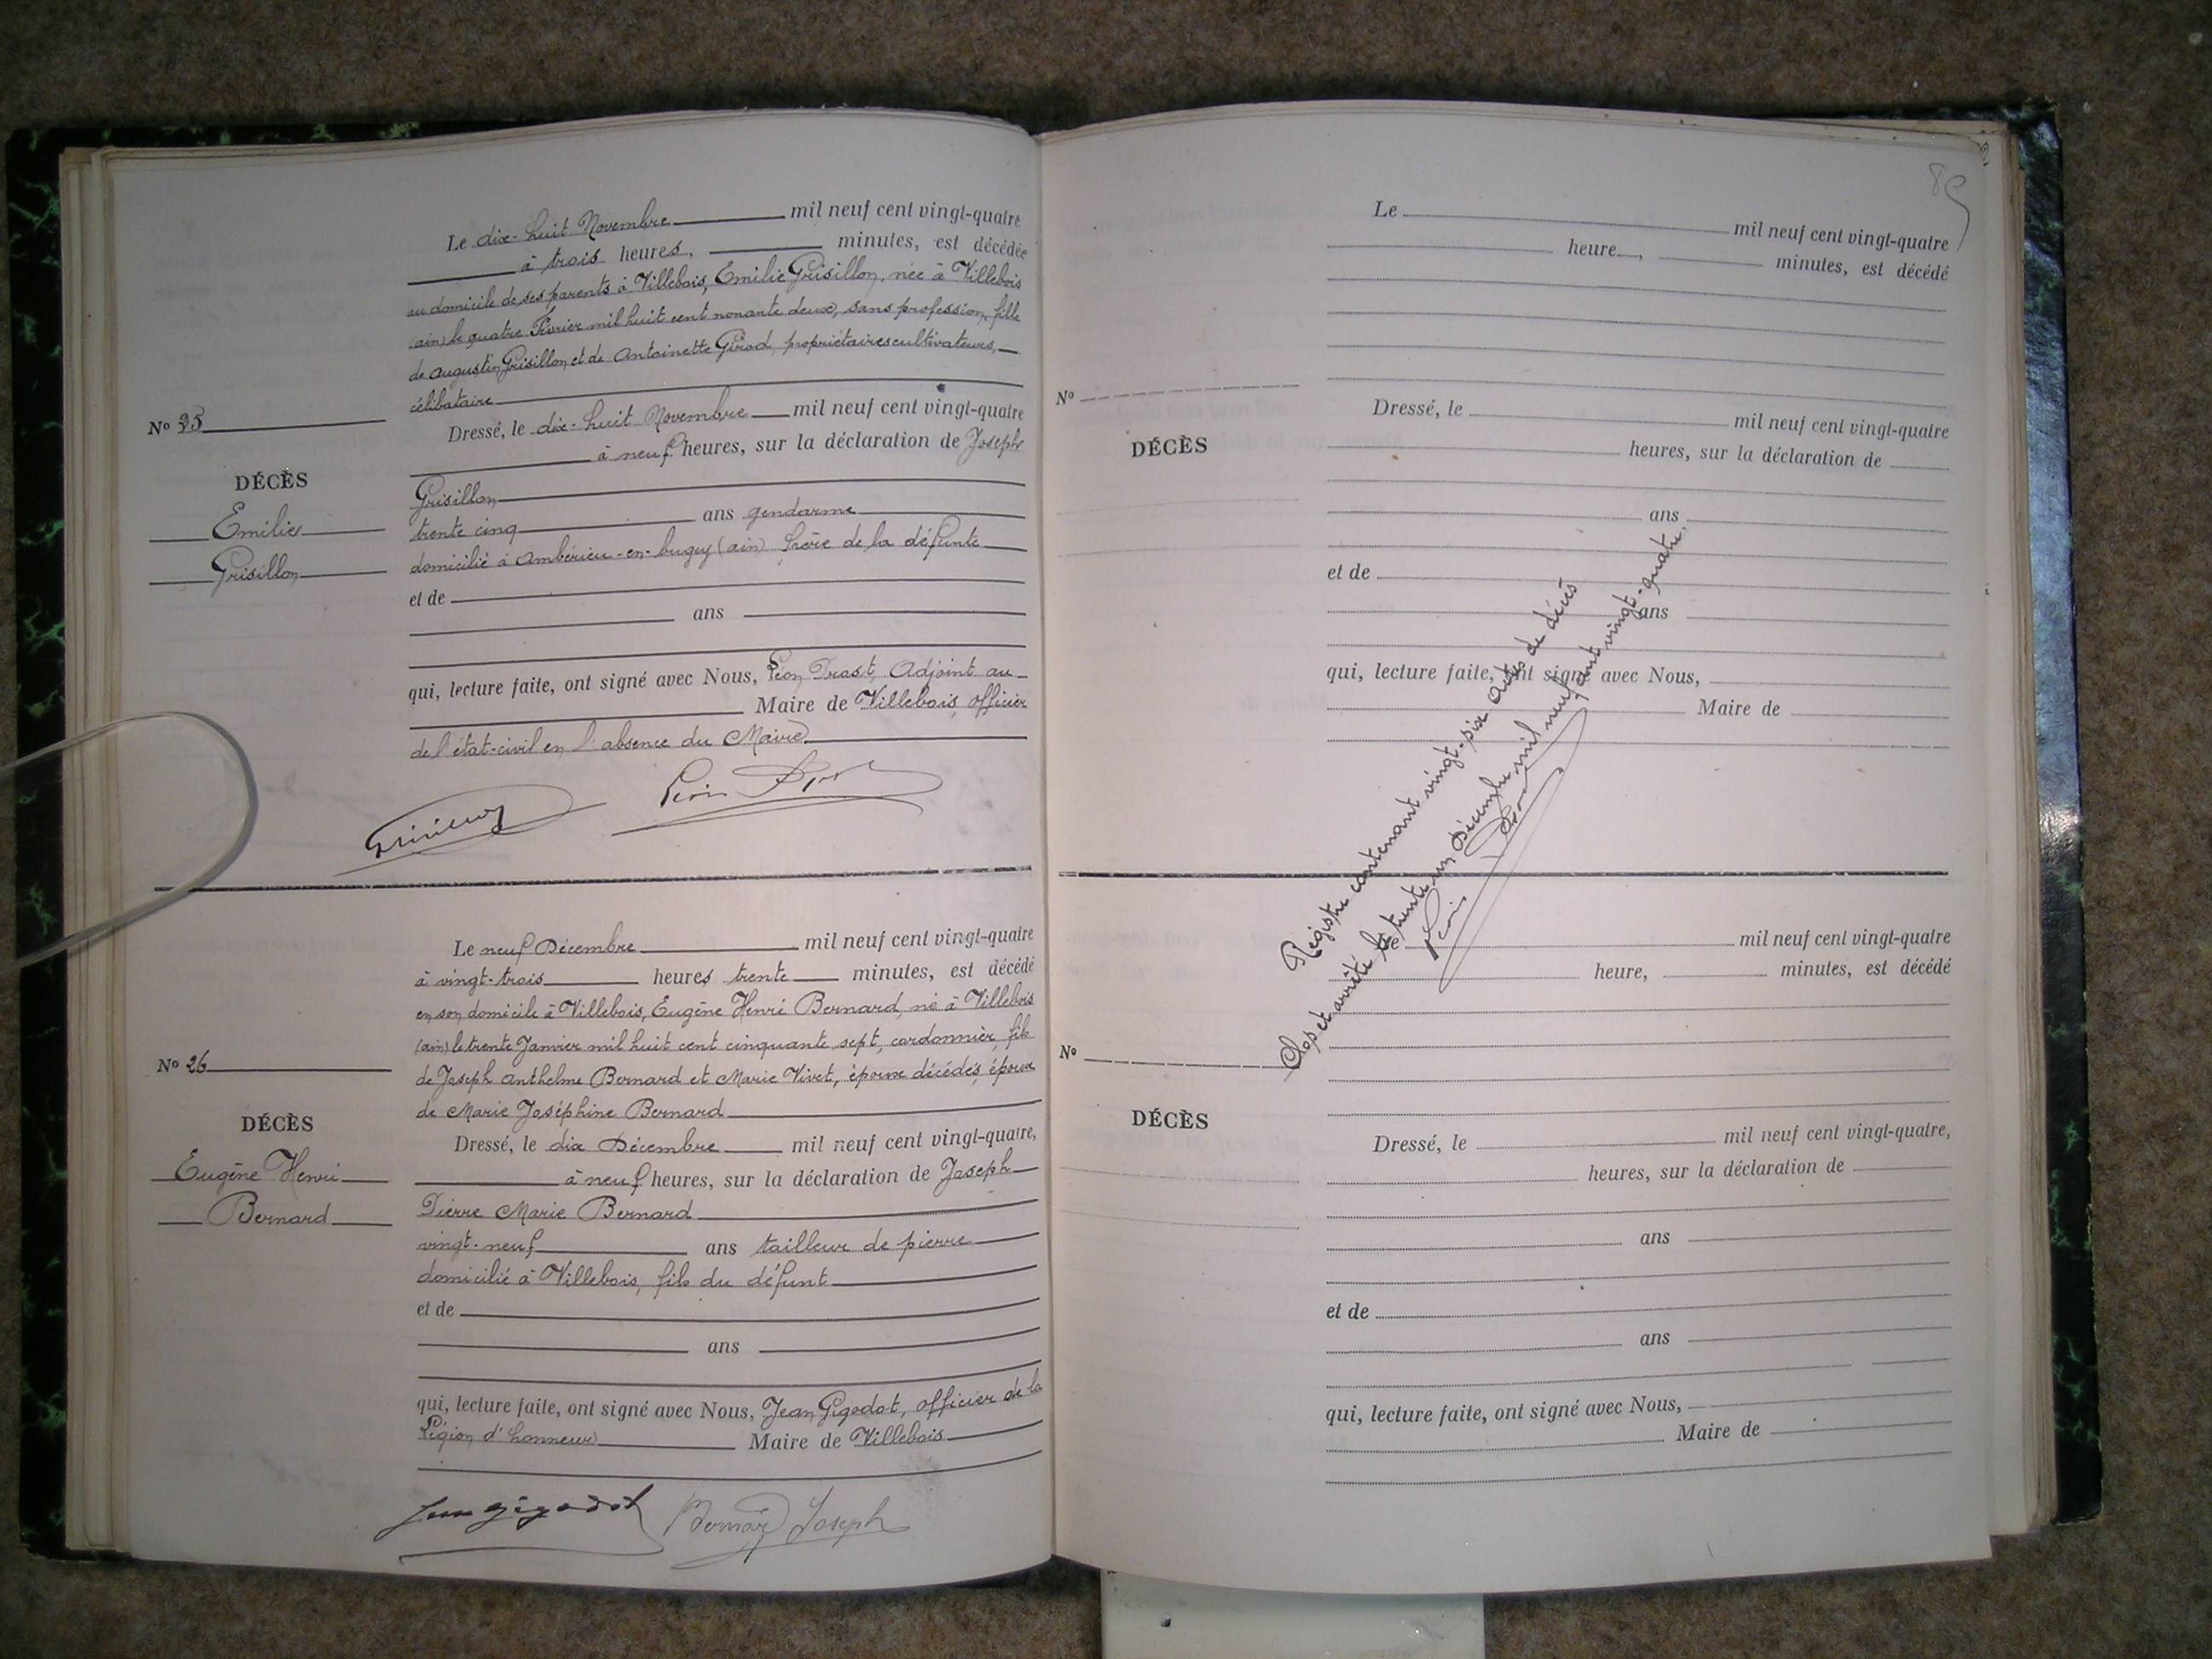 Le dix-huit Novembre mil neuf cent vingt-quatre
à trois heures, minutes, est décédée
au domicile de ses parents à Villebois, Emilie Grisillon, née à Villebois
(ain) le quatre Février mil huit cent nonante deux, sans profession, fille
de Augustin Grisillon et de Antoinette Girod, propriétaires cultivateurs,
célibataire
No 25
Dressé, le dix-huit Novembre mil neuf cent vingt-quatre
à neuf heures, sur la déclaration de Joseph
DÉCÈS
Grisillon
Emilie
trente cinq ans gendarme
Grisillon
domicilié à Ambérieu-en-bugey (ain) frère de la défunte
et de
ans
qui, lecture faite, ont signé avec Nous, Léon Prost, Adjoint au
Maire de Villebois, officier
de l'état-civil en l'absence du Maire
Grisillon
Léon Prost
Le neuf Décembre mil neuf cent vingt-quatre
à vingt-trois heures trente minutes, est décédé
en son domicile à Villebois, Eugène Henri Bernard, né à Villebois
(ain) le trente Janvier mil huit cent cinquante sept, cordonnier, fils
No 26
de Joseph Anthelme Bernard et Marie Vivet, époux décédés, époux
de Marie Joséphine Bernard
DÉCÈS
Dressé, le dix Décembre mil neuf cent vingt-quatre,
Eugène Henri
à neuf heures, sur la déclaration de Joseph
Bernard
Pierre Marie Bernard
vingt-neuf ans tailleur de pierre
domicilié à Villebois, fils du défunt
et de
ans
qui, lecture faite, ont signé avec Nous, Jean Gigodot, officier de la
Légion d'honneur Maire de Villebois
Jean Gigodot Bernard Joseph
89
Le mil neuf cent vingt-quatre
heure , minutes, est décédé
No
Dressé, le mil neuf cent vingt-quatre
DÉCÈS
heures, sur la déclaration de
ans
et de
ans
qui, lecture faite, ont signé avec Nous,
Maire de
Registre contenant vingt-six actes de décès
Clos et arrêté le trente un Décembre mil neuf cent vingt-quatre.
Léon Prost
Le mil neuf cent vingt-quatre
heure, minutes, est décédé
No
DÉCÈS
Dressé, le mil neuf cent vingt-quatre,
heures, sur la déclaration de
ans
et de
ans
qui, lecture faite, ont signé avec Nous,
Maire de